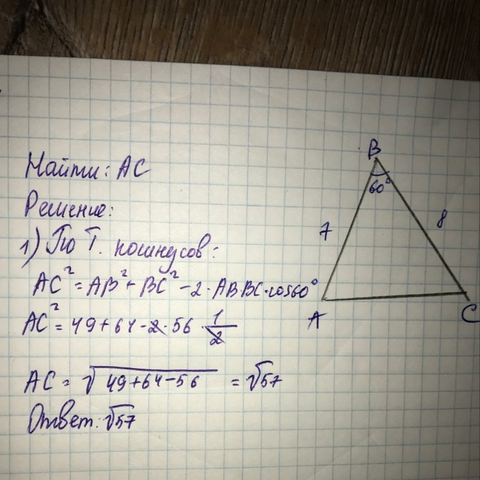 Найти: AC
Решение:
1) По Т. косинусов:
AC² = AB² + BC² - 2·AB BC·cos60°
AC² = 49+64-2·56·1/2
AC = √49+64-56 = √57
Ответ: √57
B
60°
7
8
A
C